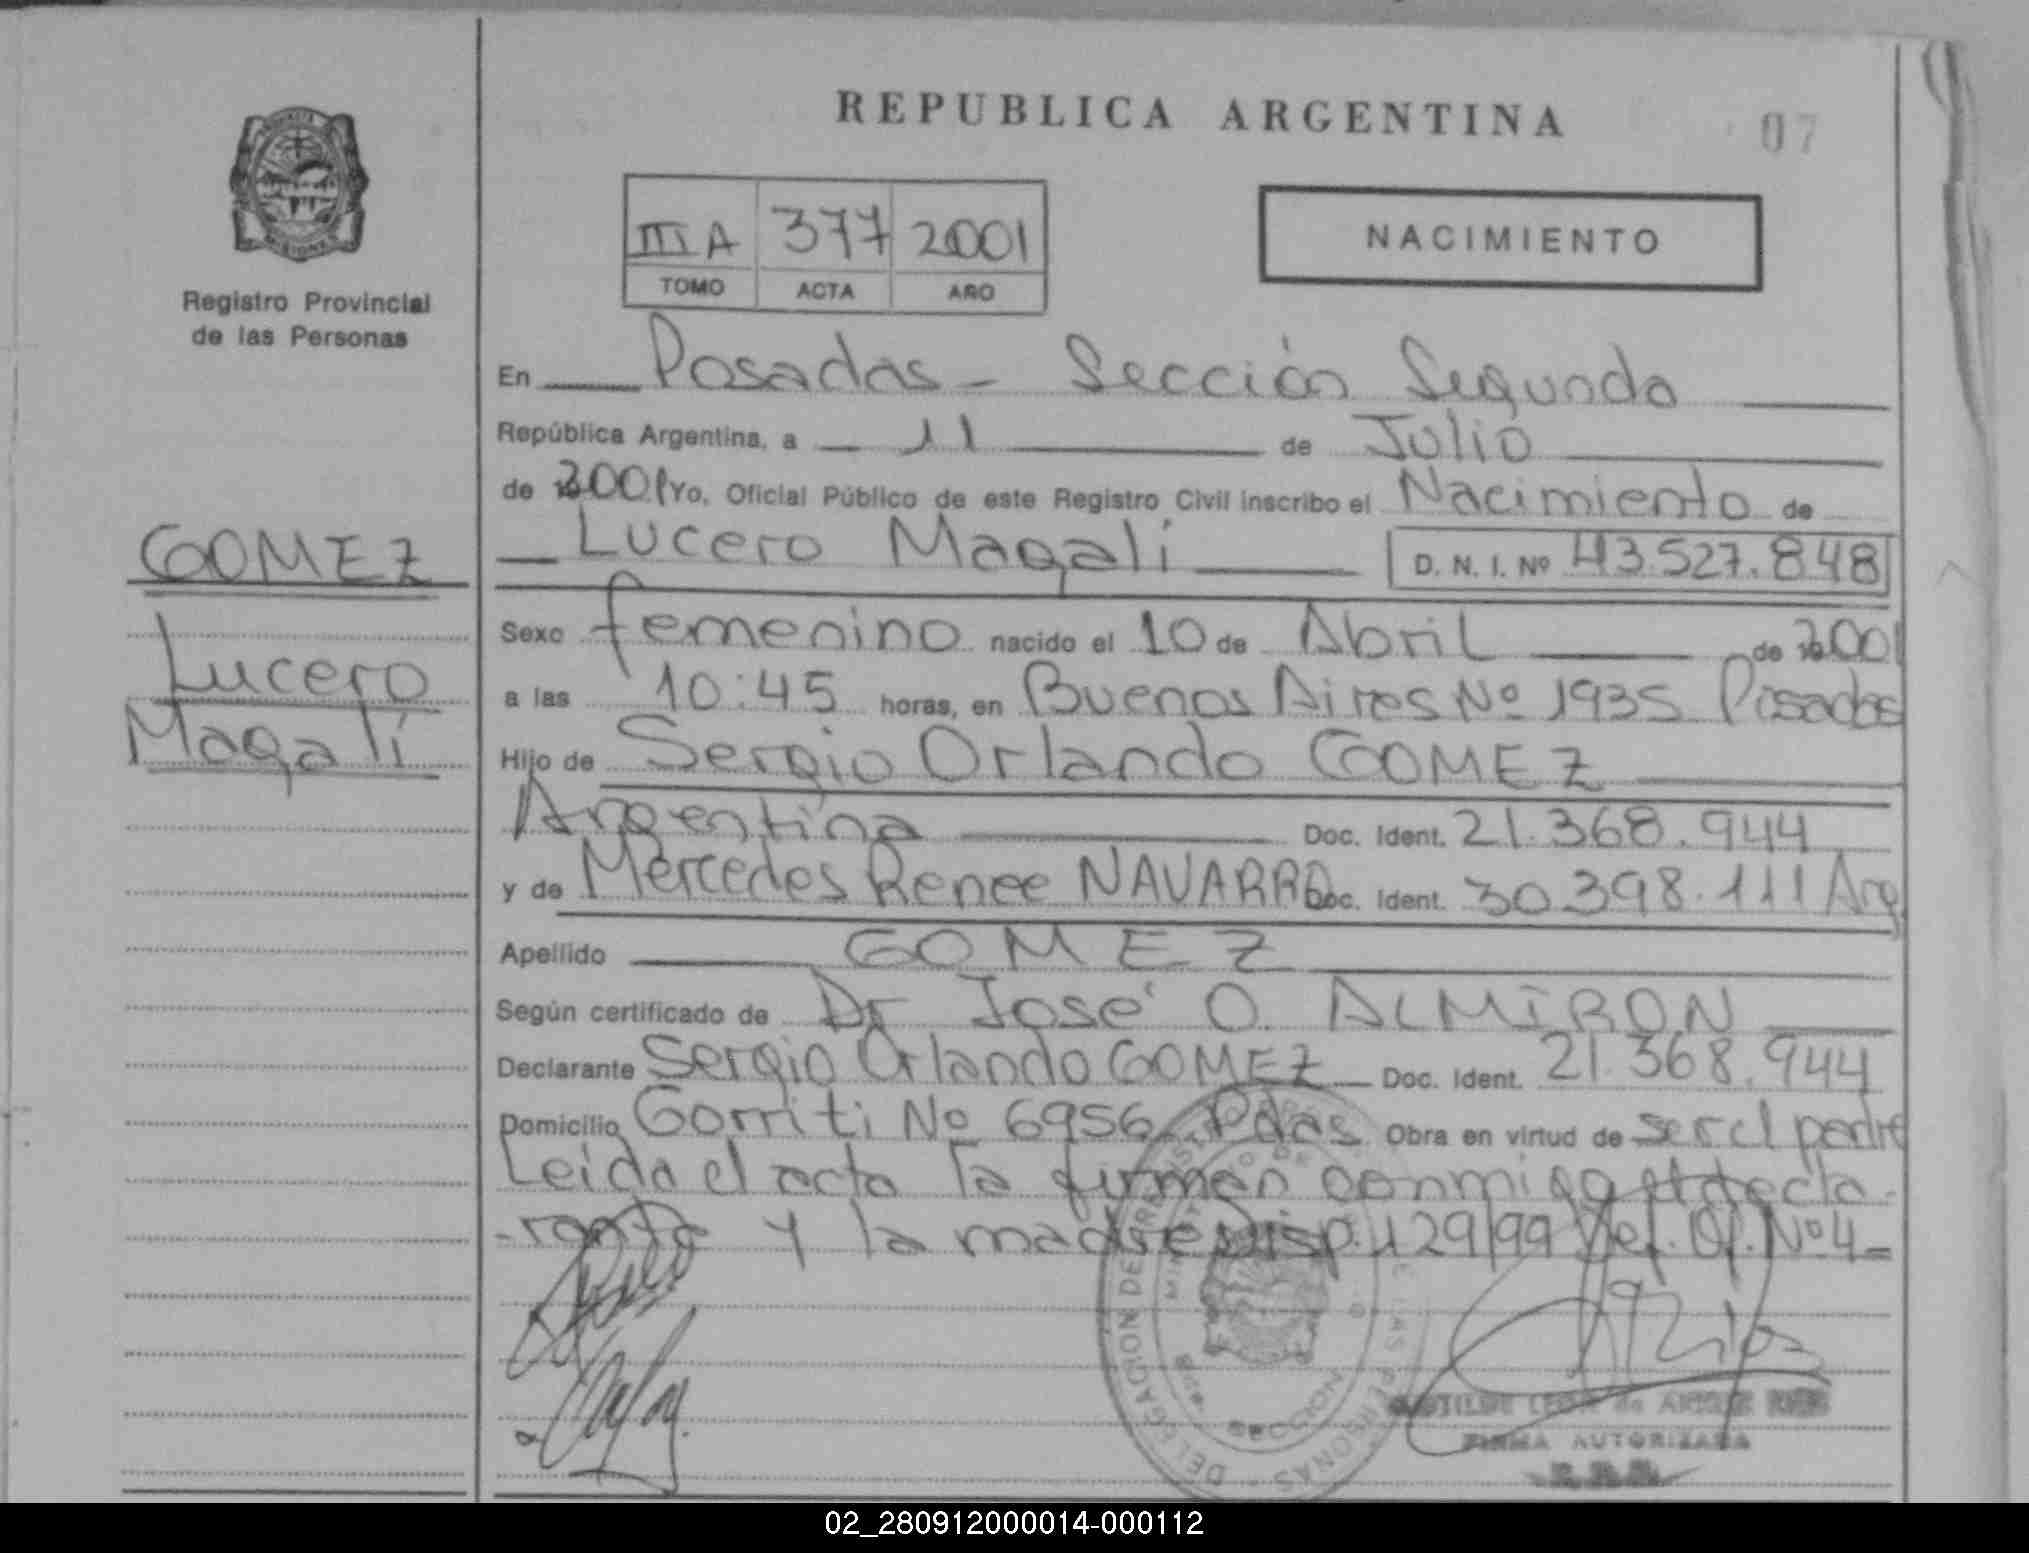 REPUBLICA ARGENTINA
07
Registro Provincial
de las Personas
III A 377 2001
TOMO ACTA AÑO
NACIMIENTO
En Posadas - Sección Segunda
República Argentina, a 11 de Julio
de 2001 Yo, Oficial Público de este Registro Civil inscribo el Nacimiento de
Lucero Magalí D. N. I. Nº 43.527.848
GOMEZ
Lucero
Magalí
Sexo femenino nacido el 10 de Abril de 2001
a las 10:45 horas, en Buenos Aires Nº 1935 Posadas
Hijo de Sergio Orlando GOMEZ
Argentina Doc. Ident. 21.368.944
y de Mercedes Renee NAVARRO Doc. Ident. 30.398.111 Arg.
Apellido GOMEZ
Según certificado de Dr José O. ALMIRON
Declarante Sergio Orlando GOMEZ Doc. Ident. 21.368.944
Domicilio Gorriti Nº 6956 Pdas Obra en virtud de ser el padre
Leida el acta la firman conmigo el decla-
-rante y la madre Disp. 129/99 Of. Nº 4=
DELEGACION DE LAS PERSONAS
SECCION
de
FIRMA AUTORIZADA
02_280912000014-000112